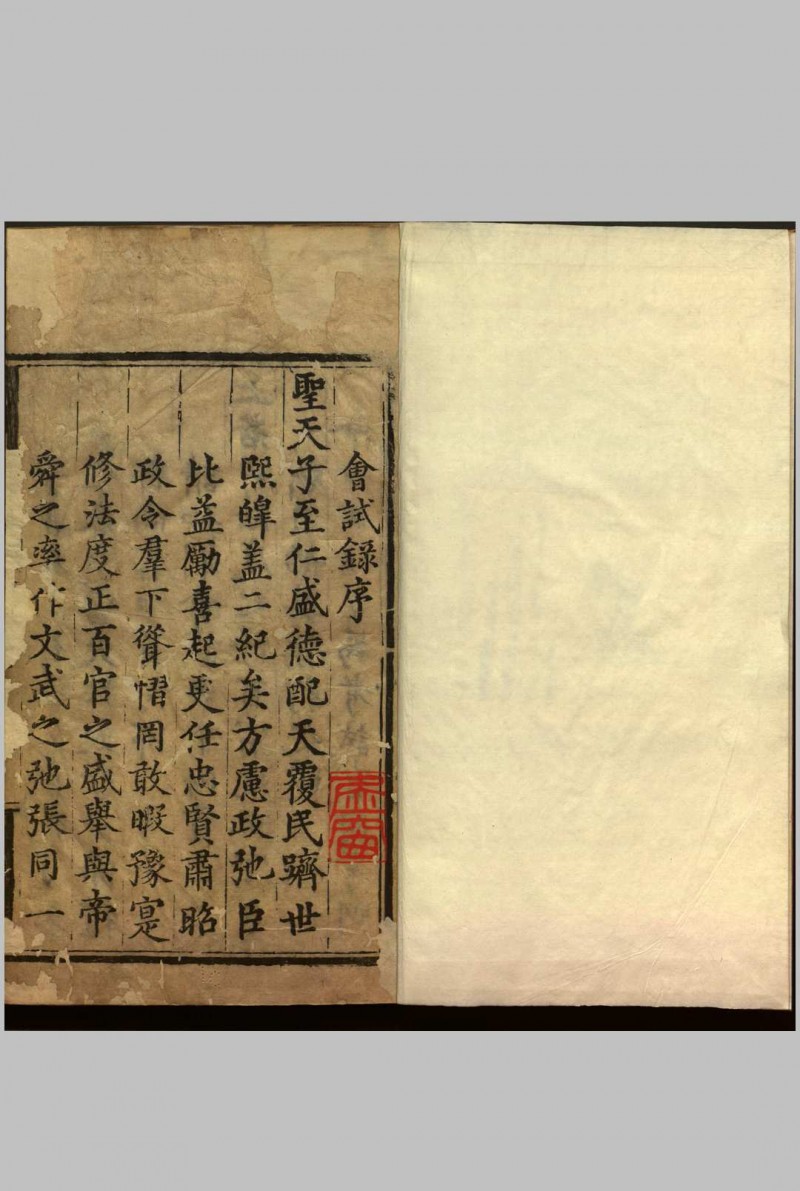 會試錄序
聖天子至仁盛德配天覆民躋世
熙皞蓋二紀矣方慮政弛臣
比益勵喜起更任忠賢肅昭
政令羣下聳慴罔敢暇豫寔
修法度正百官之盛舉與帝
舜之率作文武之弛張同一